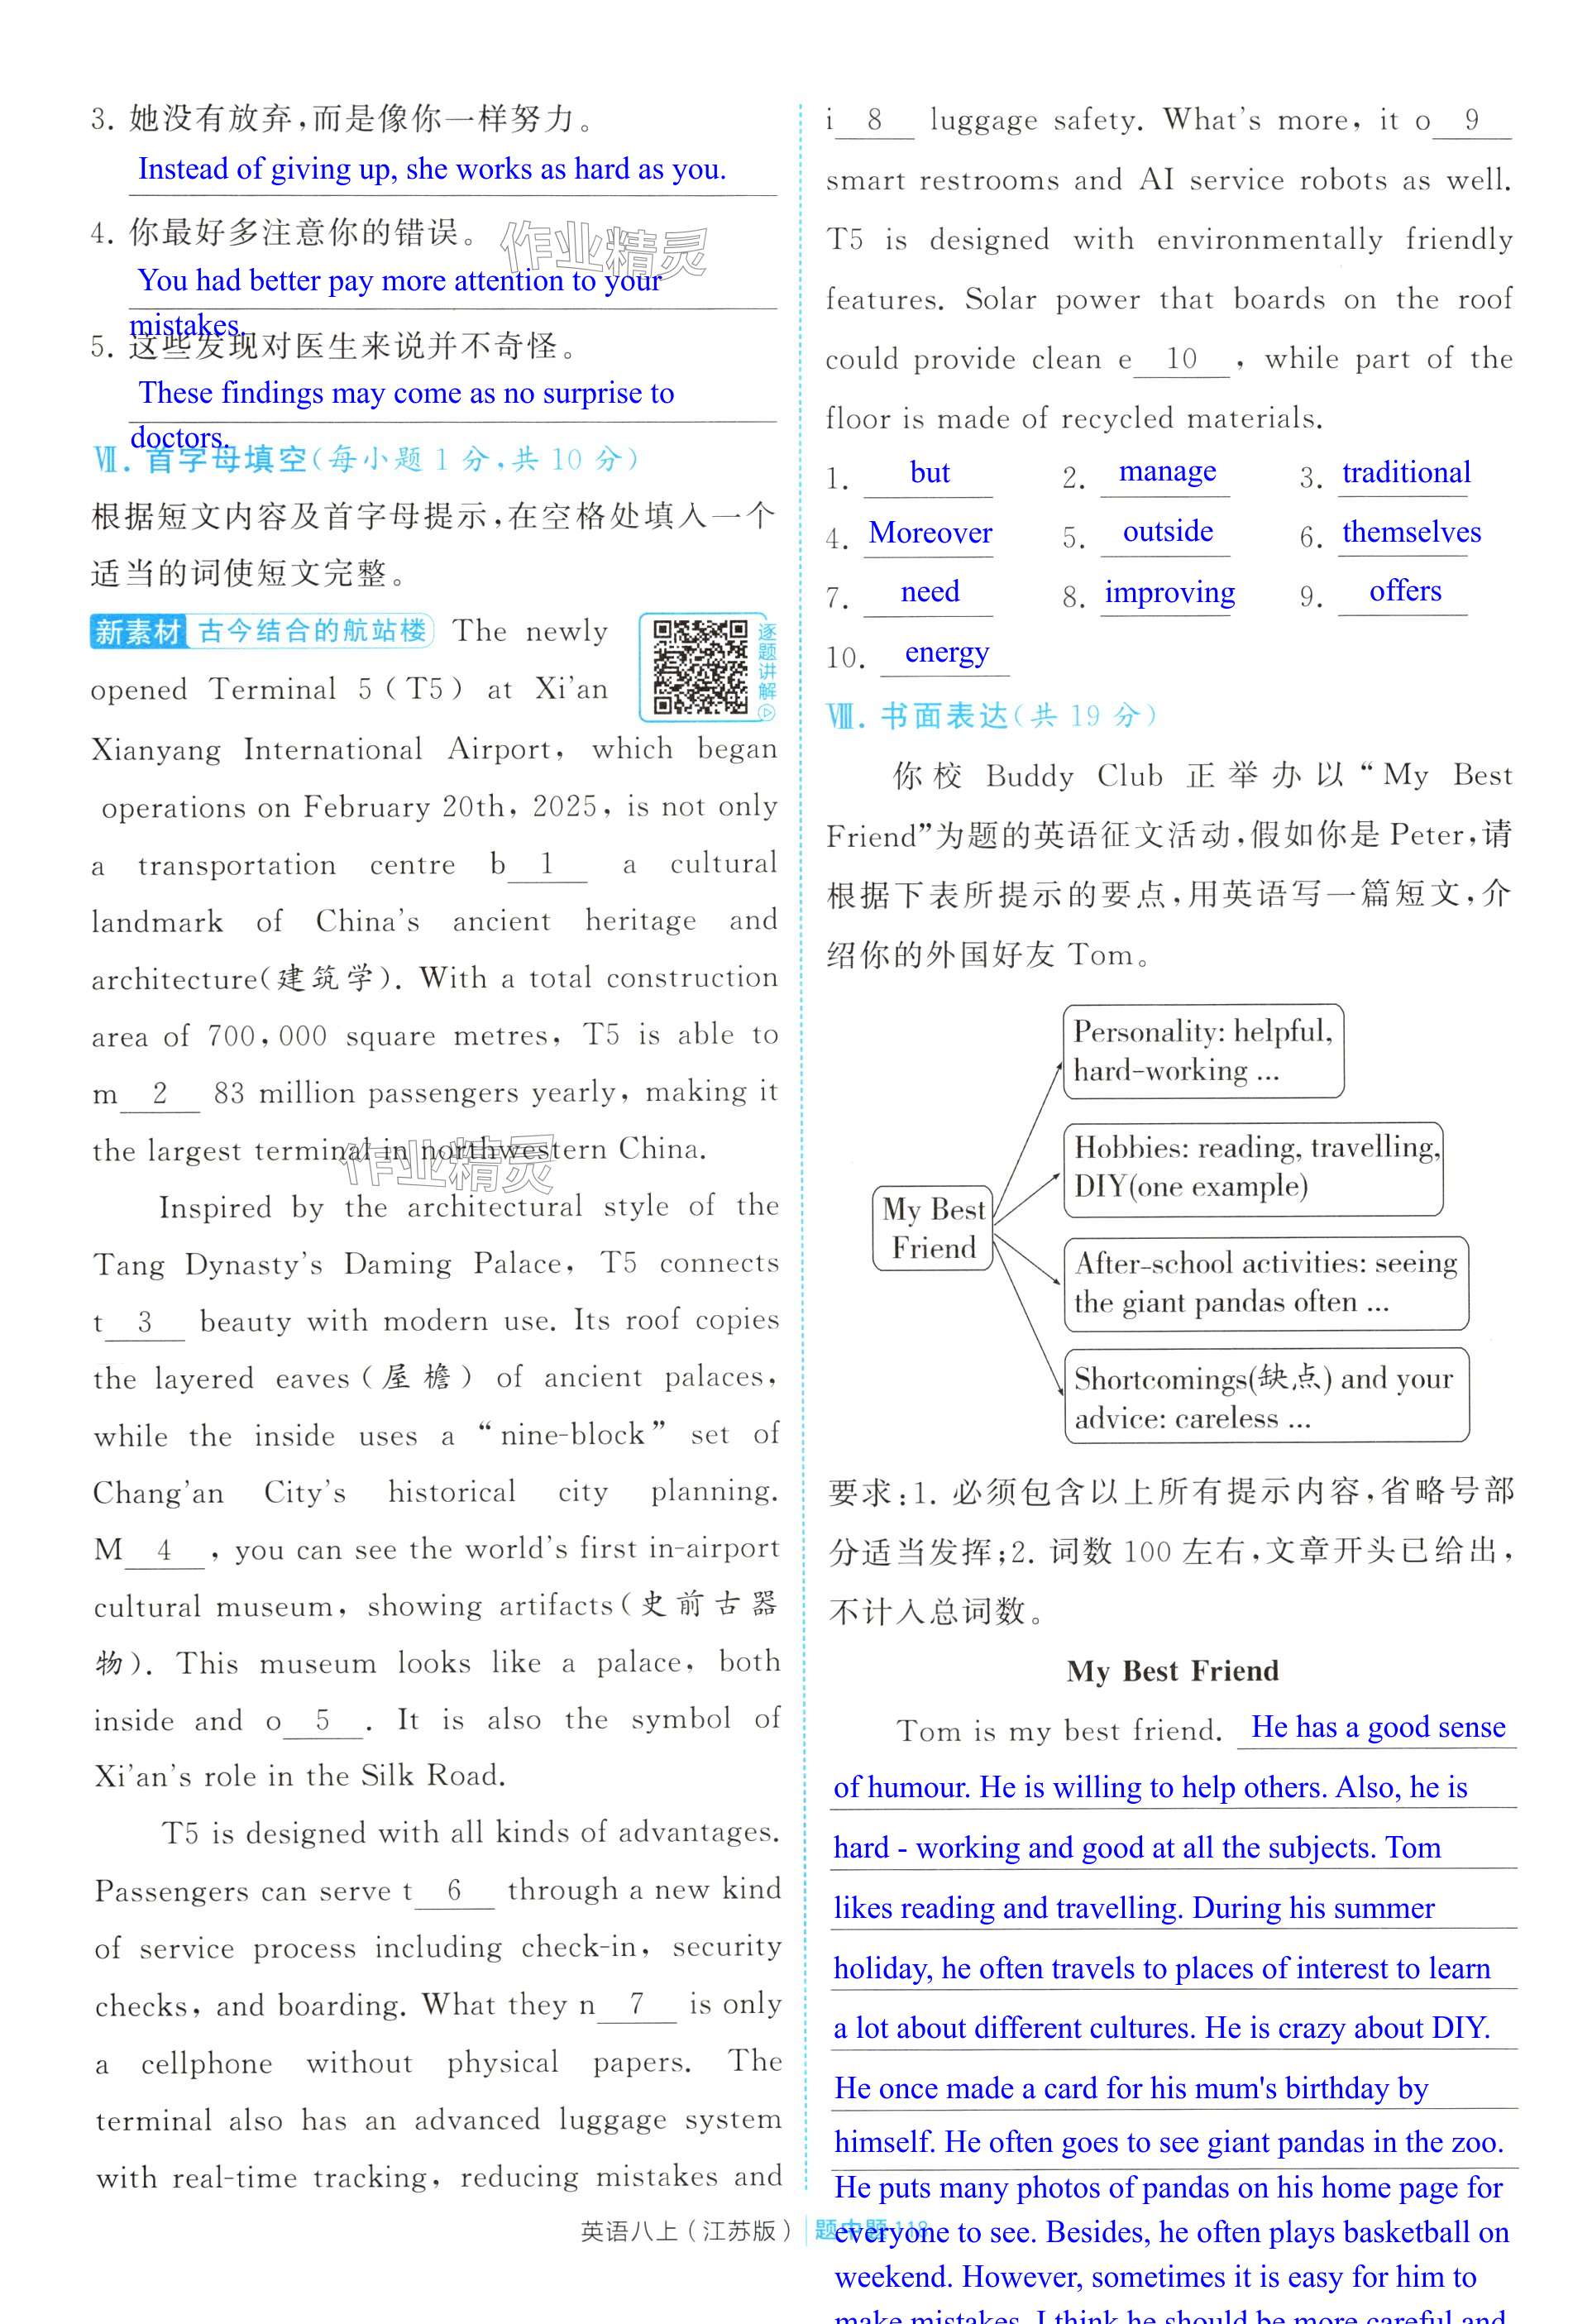 3. 她没有放弃,而是像你一样努力。
Instead of giving up, she works as hard as you.
4. 你最好多注意你的错误。
作业精灵
You had better pay more attention to your
mistakes.
5. 这些发现对医生来说并不奇怪。
These findings may come as no surprise to
doctors.
Ⅶ. 首字母填空(每小题 1 分,共 10 分)
根据短文内容及首字母提示,在空格处填入一个
适当的词使短文完整。
新素材 古今结合的航站楼 The newly
逐题讲解
opened Terminal 5(T5) at Xi'an
Xianyang International Airport, which began
operations on February 20th, 2025, is not only
a transportation centre b 1 a cultural
landmark of China's ancient heritage and
architecture(建筑学). With a total construction
area of 700,000 square metres, T5 is able to
m 2 83 million passengers yearly, making it
the largest terminal in northwestern China.
作业精灵
Inspired by the architectural style of the
Tang Dynasty's Daming Palace, T5 connects
t 3 beauty with modern use. Its roof copies
the layered eaves(屋檐) of ancient palaces,
while the inside uses a "nine-block" set of
Chang'an City's historical city planning.
M 4 , you can see the world's first in-airport
cultural museum, showing artifacts(史前古器
物). This museum looks like a palace, both
inside and o 5 . It is also the symbol of
Xi'an's role in the Silk Road.
T5 is designed with all kinds of advantages.
Passengers can serve t 6 through a new kind
of service process including check-in, security
checks, and boarding. What they n 7 is only
a cellphone without physical papers. The
terminal also has an advanced luggage system
with real-time tracking, reducing mistakes and
i 8 luggage safety. What's more, it o 9
smart restrooms and AI service robots as well.
T5 is designed with environmentally friendly
features. Solar power that boards on the roof
could provide clean e 10 , while part of the
floor is made of recycled materials.
1. but 2. manage 3. traditional
4. Moreover 5. outside 6. themselves
7. need 8. improving 9. offers
10. energy
Ⅷ. 书面表达(共 19 分)
你校 Buddy Club 正举办以"My Best
Friend"为题的英语征文活动,假如你是 Peter,请
根据下表所提示的要点,用英语写一篇短文,介
绍你的外国好友 Tom。
My Best
Friend
Personality: helpful,
hard-working ...
Hobbies: reading, travelling,
DIY(one example)
After-school activities: seeing
the giant pandas often ...
Shortcomings(缺点) and your
advice: careless ...
要求:1. 必须包含以上所有提示内容,省略号部
分适当发挥;2. 词数 100 左右,文章开头已给出,
不计入总词数。
My Best Friend
Tom is my best friend. He has a good sense
of humour. He is willing to help others. Also, he is
hard - working and good at all the subjects. Tom
likes reading and travelling. During his summer
holiday, he often travels to places of interest to learn
a lot about different cultures. He is crazy about DIY.
He once made a card for his mum's birthday by
himself. He often goes to see giant pandas in the zoo.
He puts many photos of pandas on his home page for
everyone to see. Besides, he often plays basketball on
weekend. However, sometimes it is easy for him to
make mistakes. I think he should be more careful and
英语八上(江苏版) 题中题 118